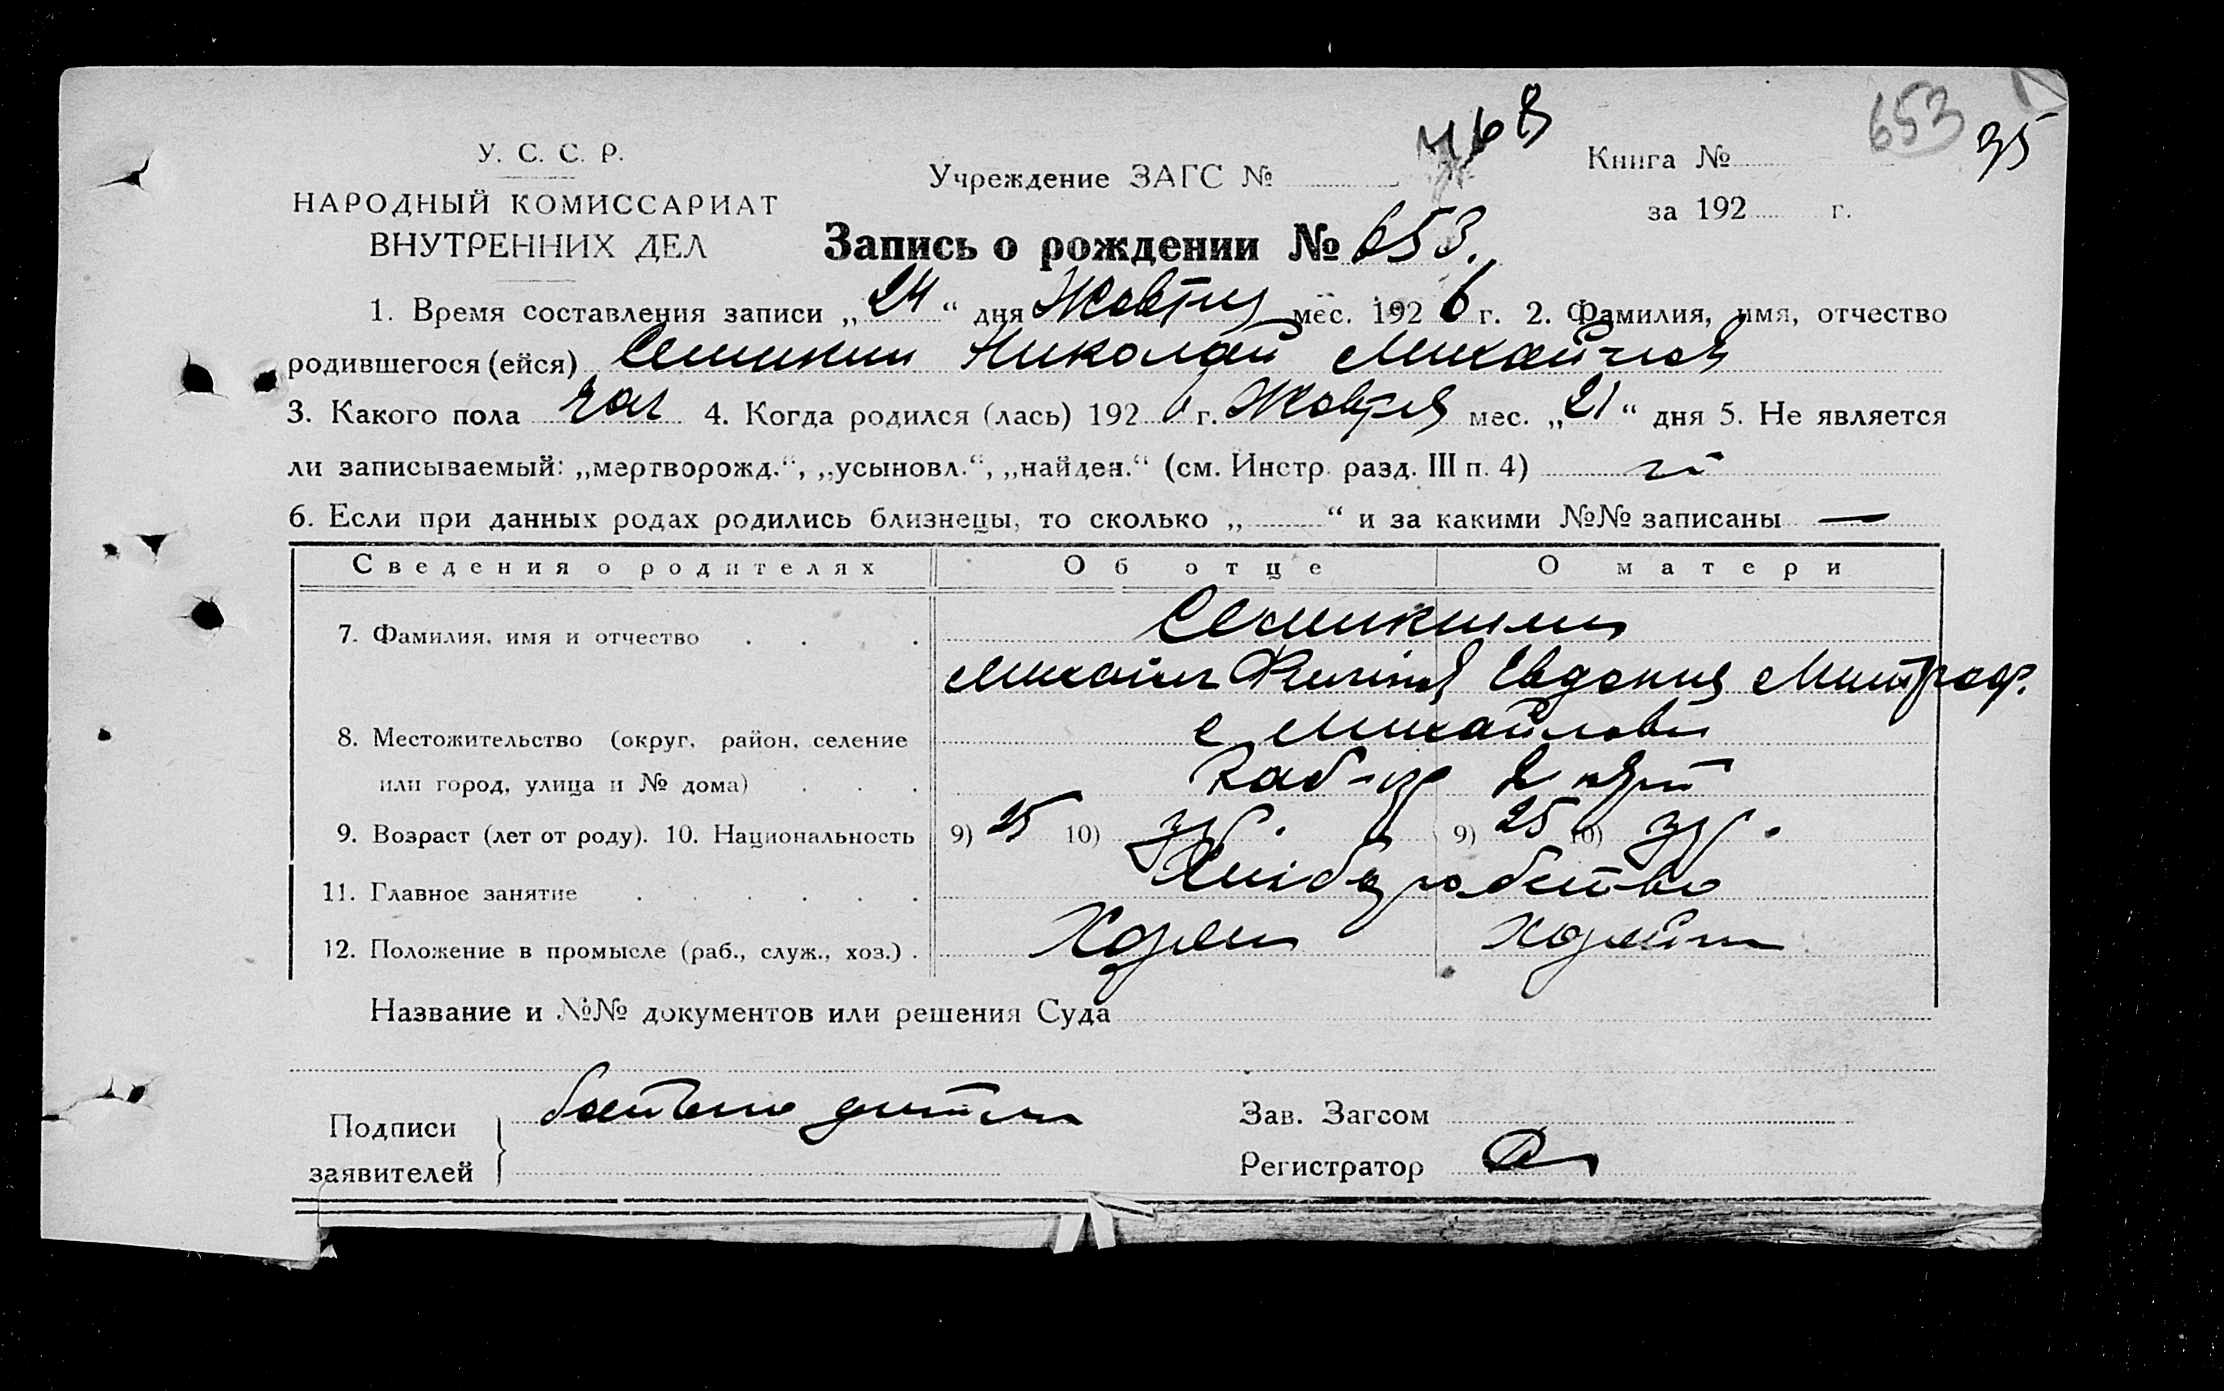 653
768
35
У. С. С. Р.
НАРОДНЫЙ КОМИССАРИАТ
ВНУТРЕННИХ ДЕЛ
Учреждение ЗАГС №
Книга №
за 192 г.
Запись о рождении № 653.
1. Время составления записи „24“ дня Жовтня мес. 1926 г. 2. Фамилия, имя, отчество
родившегося (ейся) Семикин Николай Михайлов
3. Какого пола чол 4. Когда родился (лась) 1926 г. Жовтня мес. „21“ дня 5. Не является
ли записываемый: „мертворожд.“, „усыновл.“, „найден.“ (см. Инстр. разд. III п. 4) ні
6. Если при данных родах родились близнецы, то сколько „ “ и за какими №№ записаны —
Сведения о родителях Об отце О матери
7. Фамилия, имя и отчество
Михаил Евдокия Митроф.
8. Местожительство (округ, район, селение с Михайловки
или город, улица и № дома)
9. Возраст (лет от роду). 10. Национальность 9) 25 10) 9) 25 10)
11. Главное занятие Хліборобство
12. Положение в промысле (раб., служ., хоз.)
Название и №№ документов или решения Суда
Подписи
заявителей
батько дитини
Зав. Загсом
Регистратор